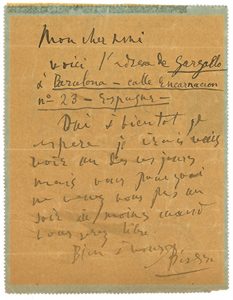 Mon cher ami
voici l'adresse de Gargallo
à Barcelona - calle Encarnacion
nº 23 - Espagne -
Oui à bientôt je
espere je irais vous
voir un des ces jours
mais vous pourquoi
ne venez vous pas un
soir du moins quand
vous serez libre
Bien à vous
Picasso